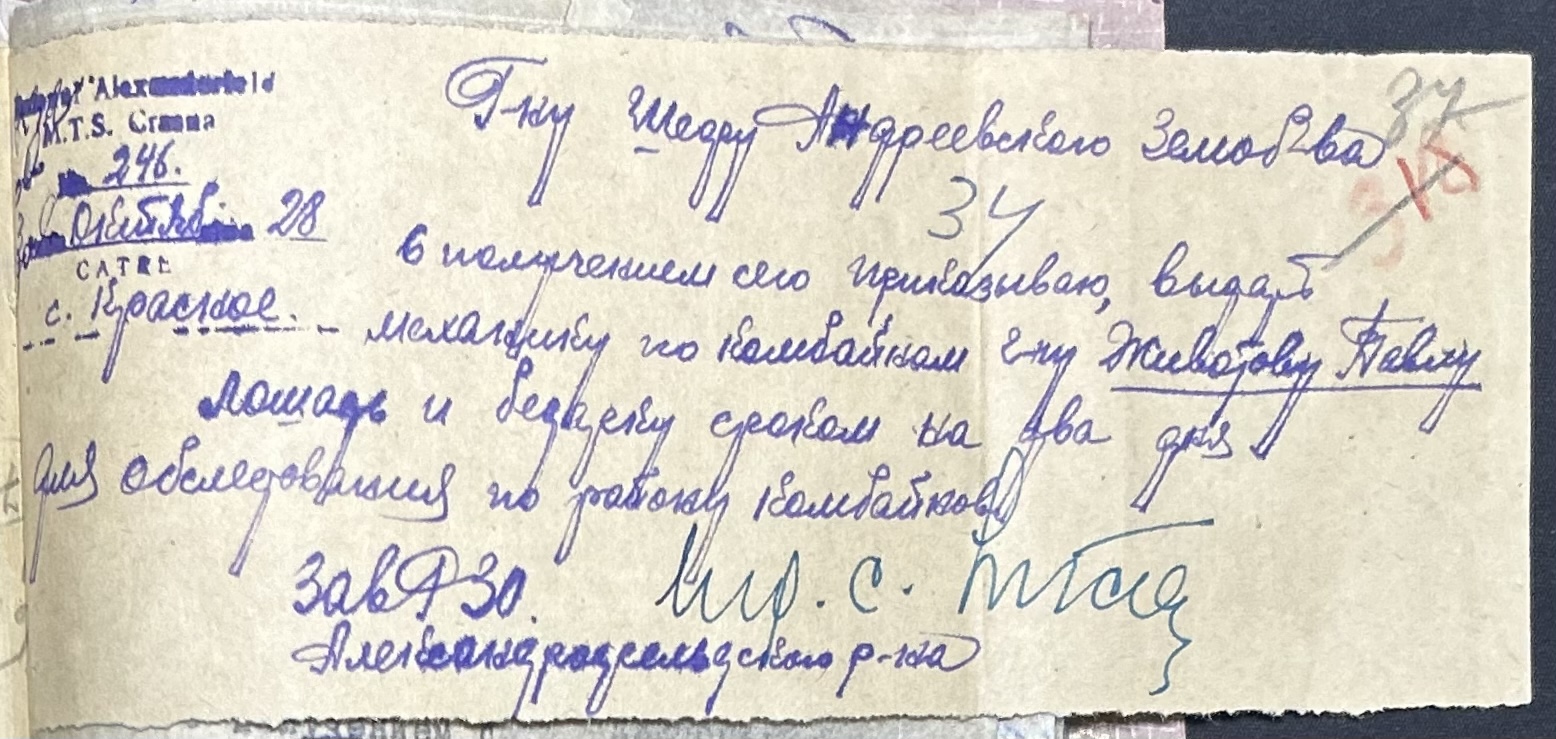 Alexanderfeld
M.T.S.
246.
Октяб. 28
CATRE
с. Красное.
37
34
Г-ну Шефу АндреевскогоЗемоб-ва
С получением сего приказываю, выдать
механику по комбайнам г-ну Животову Павлу
лошадь и бедарку сроком на два дня
для обследования по району комбайнов
Зав РЗО. Инж. С.
Александрфельдского р-на